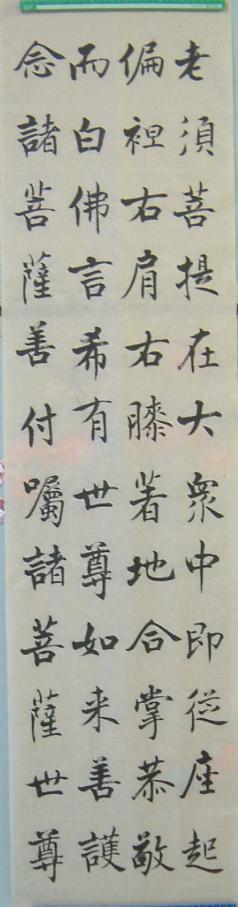 老須菩提在大衆中即從座起
偏袒右肩右膝著地合掌恭敬
而白佛言希有世尊如来善護
念諸菩薩善付囑諸菩薩世尊